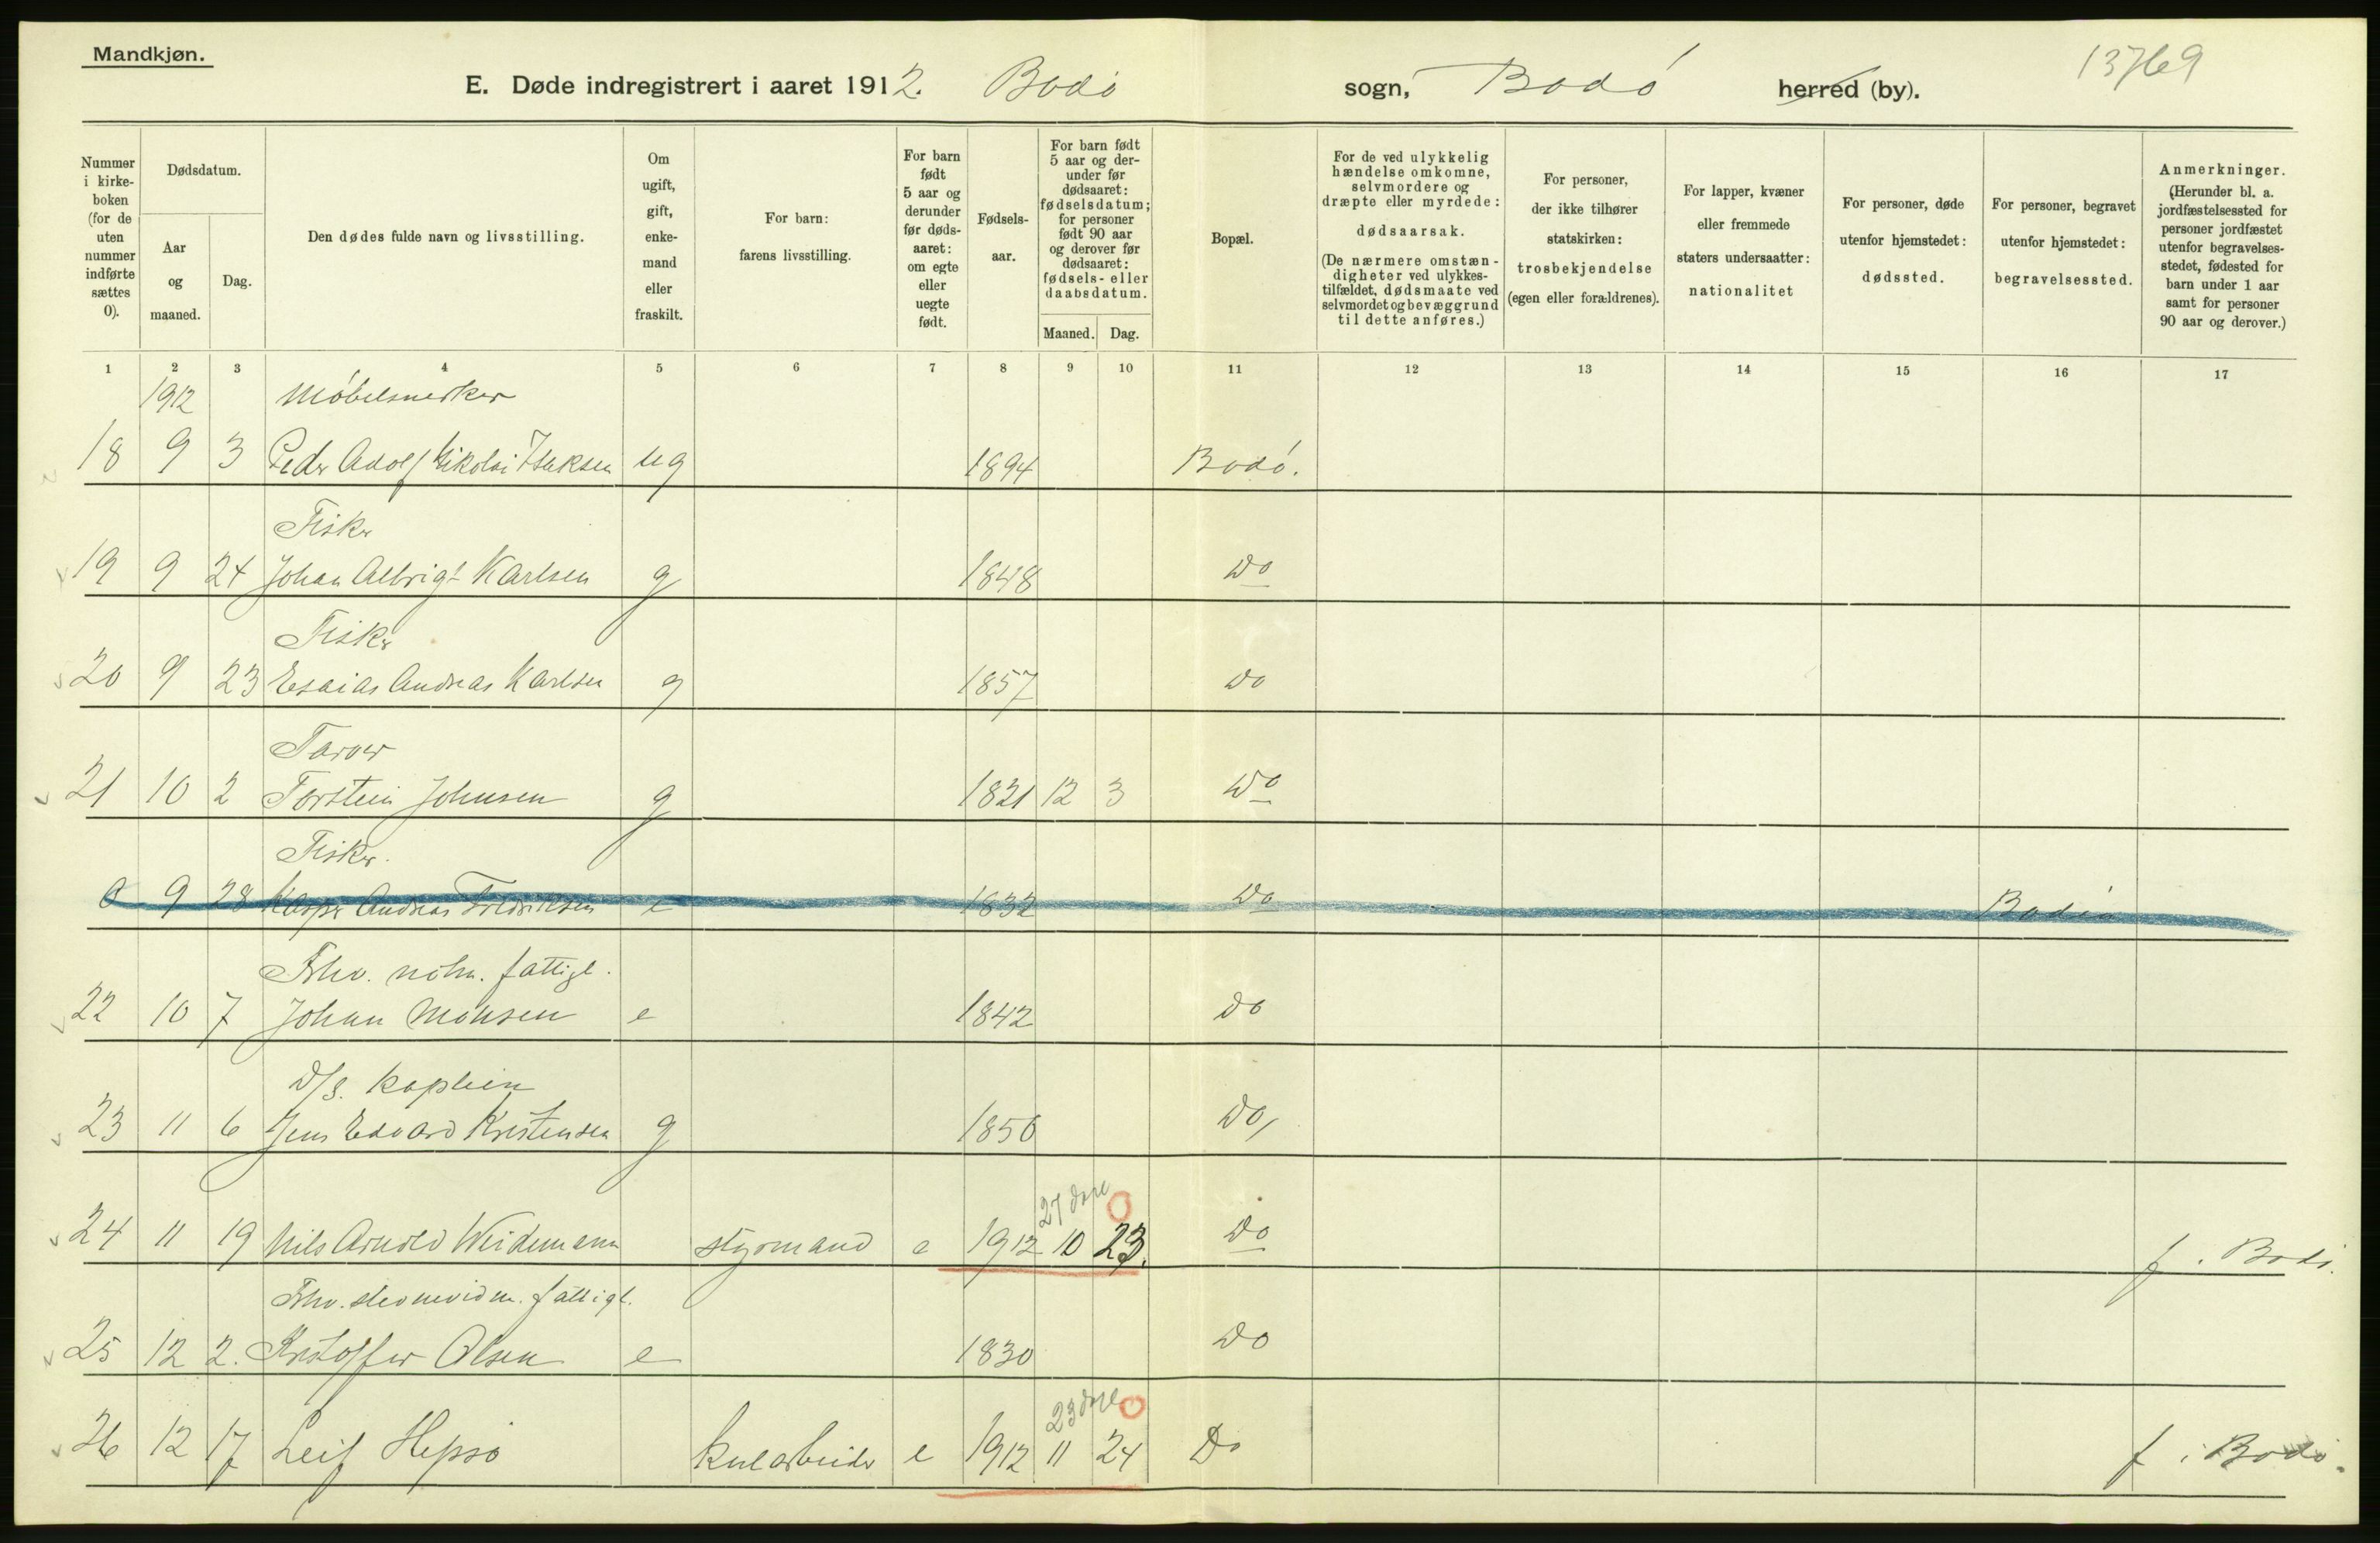 Mandkjøn.
E. Døde indregistrert i aaret 1912. Bodø sogn, Bodø herred (by). 13769
Nummer i kirke-boken (for de uten nummer indførte sættes 0).
Dødsdatum.
Aar og maaned.
Dag.
Den dødes fulde navn og livsstilling.
Om ugift, gift, enke-mand eller fraskilt.
For barn: farens livsstilling.
For barn født 5 aar og derunder før døds-aaret: om egte eller uegte født.
Fødsels-aar.
For barn født 5 aar og der-under før dødsaaret: fødselsdatum; for personer født 90 aar og derover før dødsaaret: fødsels- eller daabsdatum.
Maaned. Dag.
Bopæl.
For de ved ulykkelig hændelse omkomne, selvmordere og dræpte eller myrdede: dødsaarsak. (De nærmere omstæn-digheter ved ulykkes-tilfældet, dødsmaate ved selvmordet og bevæggrund til dette anføres.)
For personer, der ikke tilhører statskirken: trosbekjendelse (egen eller forældrenes).
For lapper, kvæner eller fremmede staters undersaatter: nationalitet
For personer, døde utenfor hjemstedet: dødssted.
For personer, begravet utenfor hjemstedet: begravelsessted.
Anmerkninger. (Herunder bl. a. jordfæstelsessted for personer jordfæstet utenfor begravelses-stedet, fødested for barn under 1 aar samt for personer 90 aar og derover.)
1 2 3 4 5 6 7 8 9 10 11 12 13 14 15 16 17
1912 Møbelsnerker
18 9 3 Peder Adolf Nikolai Isaksen ug 1894 Bodø.
Fisker
19 9 24 Johan Albrigt Karlsen g 1848 Do
Fisker
20 9 23 Esaias Andreas Karlsen g 1857 Do
21 10 2 Torstein Johnsen g 1821 12 3 Do
Fisker.
0 9 28 Kasper Andreas Fredriksen e 1832 Do Bodin
Fhv. fattigl.
22 10 7 Johan Monsen e 1842 Do
D/S. kaptein
23 11 6 Jens Edvard Kristensen g 1850 Do,
27 dage
24 11 19 Nils Arnold Weidemann styrmand e 1912 10 23. Do f. Bodø.
Fhv. fattigl.
25 12 2. Kristoffer Olsen e 1830 Do
23 dage
26 12 17 Leif Hepsø kularbeider e 1912 11 24 Do f. i Bodø.